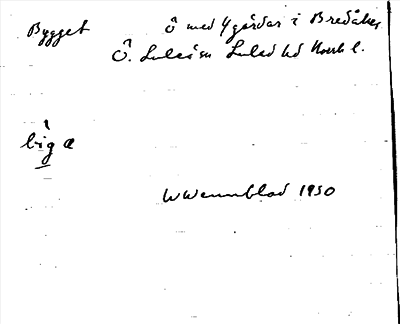 Bygget ö med 4 gårdar i Bredåker,
Ö. Luleå sn Luleå hd Norrb l.
big a
WWennblad 1930